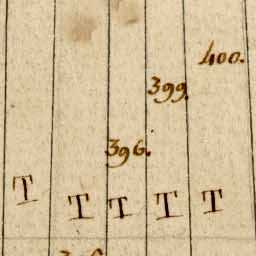 400.
399.
396.
T T T T T